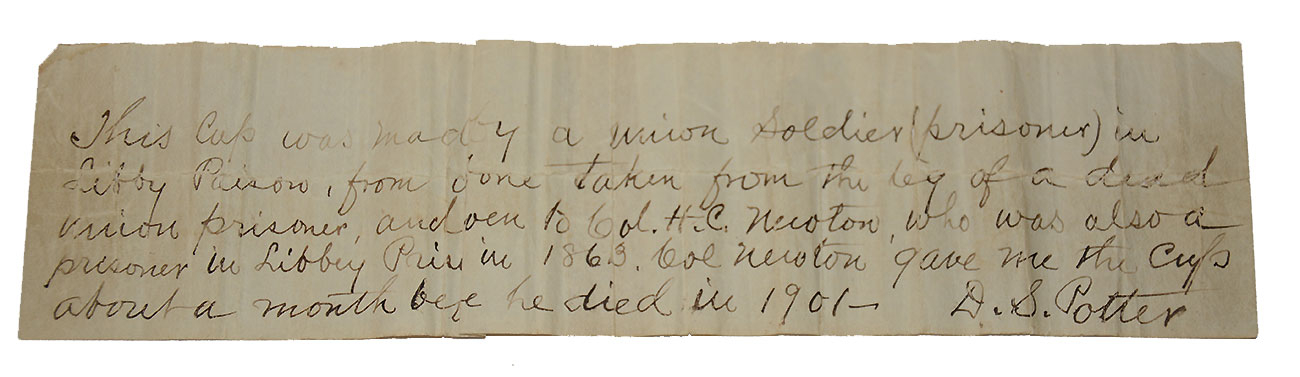 This Cup was mad by a union Soldier (prisoner) in
Libby Paison, from bone taken from the leg of a dead
union prisoner, and ven to Col. H. C. Newton, who was also a
prisoner in Libbey Pris in 1863. Col Newton gave me the Cup
about a month be e he died in 1901— D. S. Potter